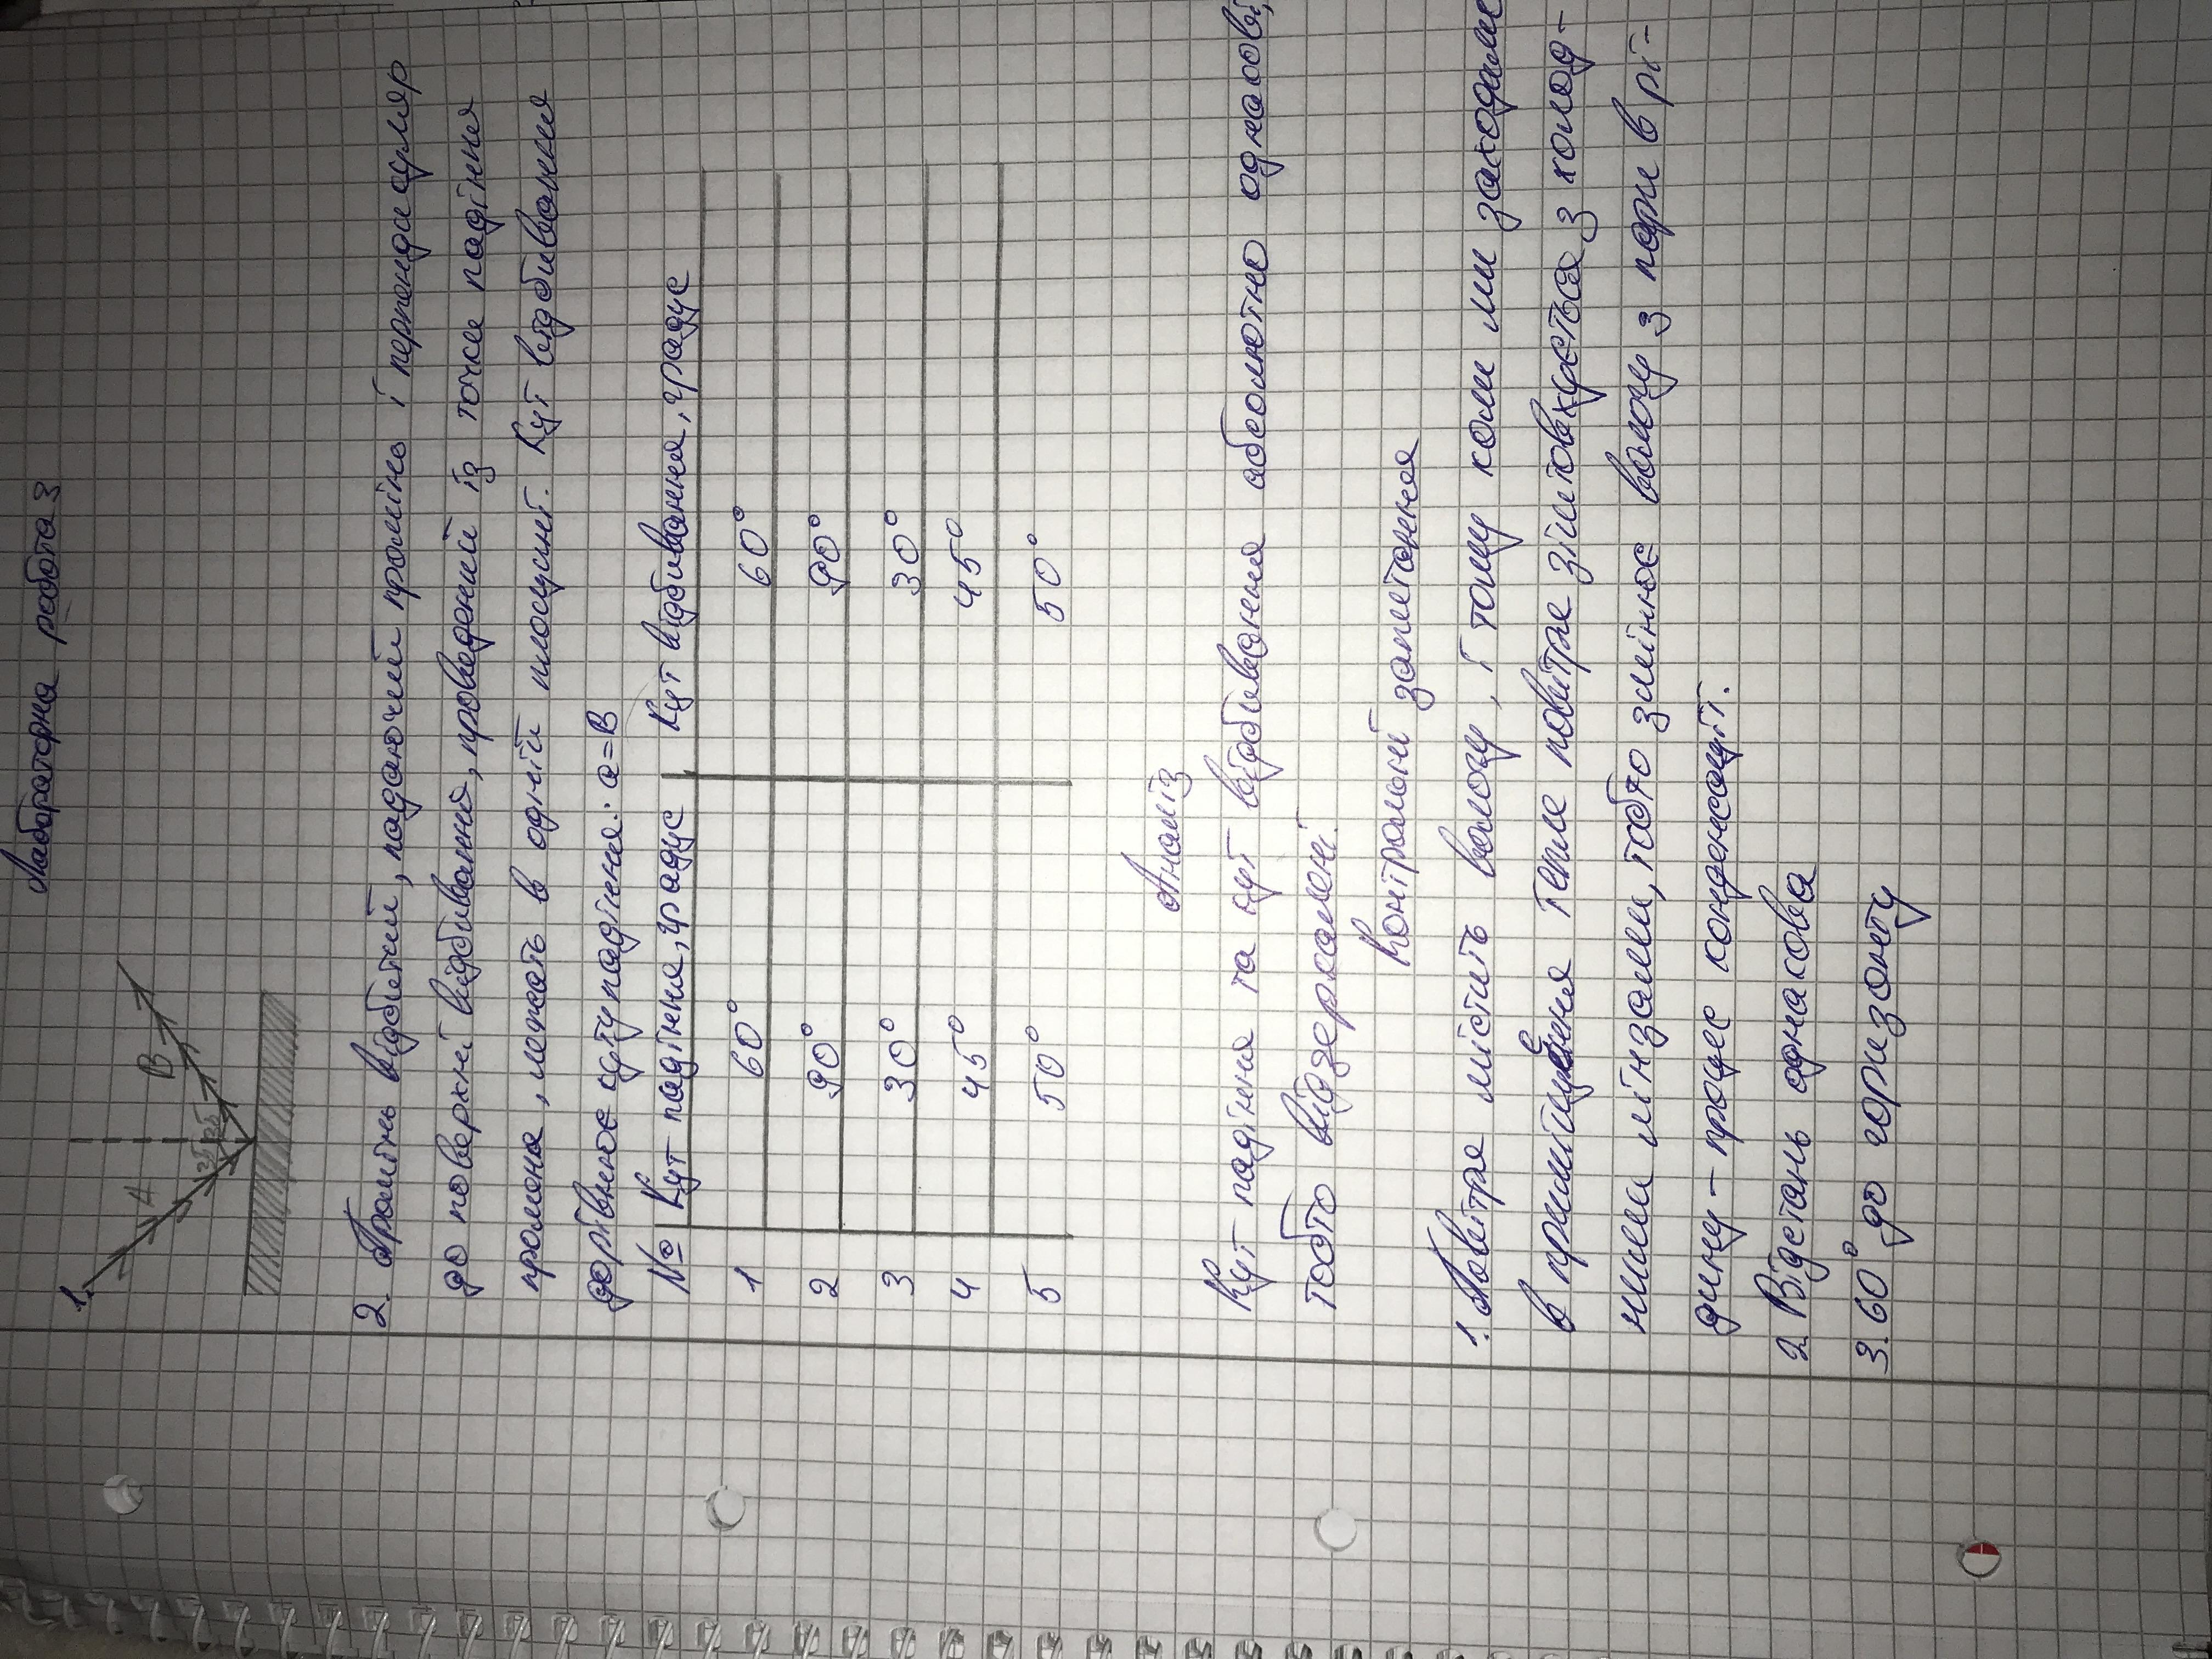 Лабораторна робота 3
1.
A B
25 25
2. Промінь відбитий, падаючий промінь і перпендикуляр
до поверхні відбивання, проведений із точки падіння
променя, лежать в одній площині. Кут відбивання
дорівнює куту падіння: a=B
№ Кут падіння, градус Кут відбивання, градус
1 60° 60°
2 90° 90°
3 30° 30°
4 45° 45°
5 50° 50°
Аналіз
Кут падіння та кут відбивання абсолютно однакові,
тобто відзеркалені.
Контрольні запитання
1. Повітря містить вологу, і тому коли ми заходимо
в приміщення тепле повітря зіштовхується з холод-
ними лінзами, тобто змінює вологу з пари в рі-
дину - процес конденсації.
2. Відстань однакова
3. 60° до горизонту